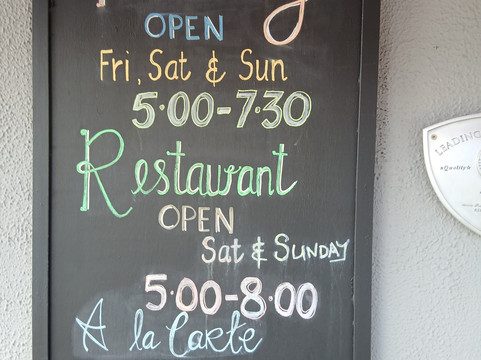 OPEN
Fri, Sat & Sun
5·00-7·30
Restaurant
OPEN
Sat & SUNDAY
5·00-8·00
A la Carte
LEADING
Quality